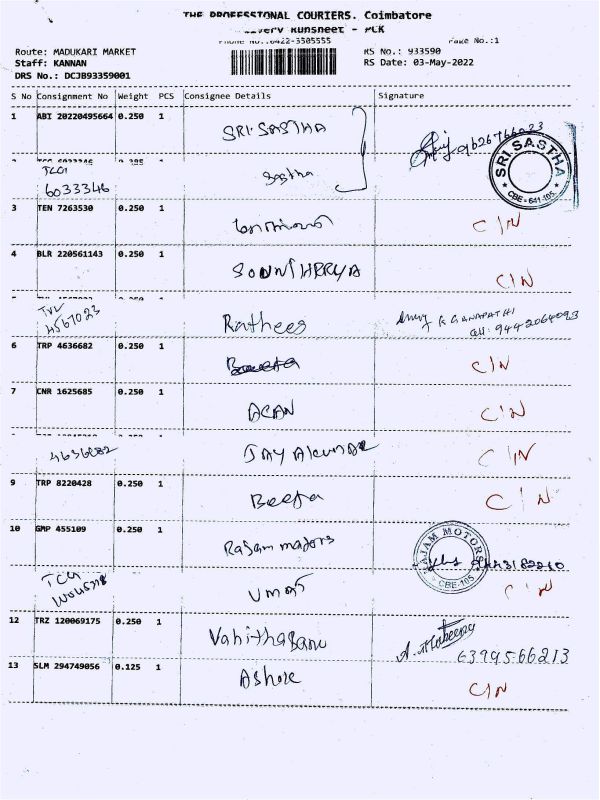 THE PROFESSIONAL COURIERS. Coimbatore
Runsheet - PCK
Phone No.:0422-3505555 Page No.:1
Route: MADUKARI MARKET RS No.: 933590
Staff: KANNAN RS Date: 03-May-2022
DRS No.: DCJB93359001
S No Consignment No Weight PCS Consignee Details Signature
1 ABI 20220495664 0.250 1 SRI.SASTHA 9626766023
SRI SASTHA
CBE - 641 105.
TCG 6033346 Sastha
3 TEN 7263530 0.250 1 C/N
4 BLR 220561143 0.250 1 C/N
TVL 4567023 Rathees K GANAPATHI
Cell: 9442064093
6 TRP 4636682 0.250 1 C/N
7 CNR 1625685 0.250 1 ACAN C/N
4636682 JAYAkumar C/N
9 TRP 8220428 0.250 1 Beeta C/N
10 GMP 455109 0.250 1 Rajam motors
RAJAM MOTORS
CBE-105
TCG உமாசி C/N
12 TRZ 120069175 0.250 1 Vahitha Banu 6399566213
13 SLM 294749056 0.125 1 Ashok C/N